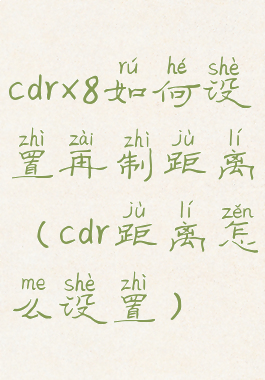 rú hé shè
cdrx8如何设
zhì zài zhì jù lí
置再制距离
jù lí zěn
（cdr距离怎
me shè zhì
么设置）